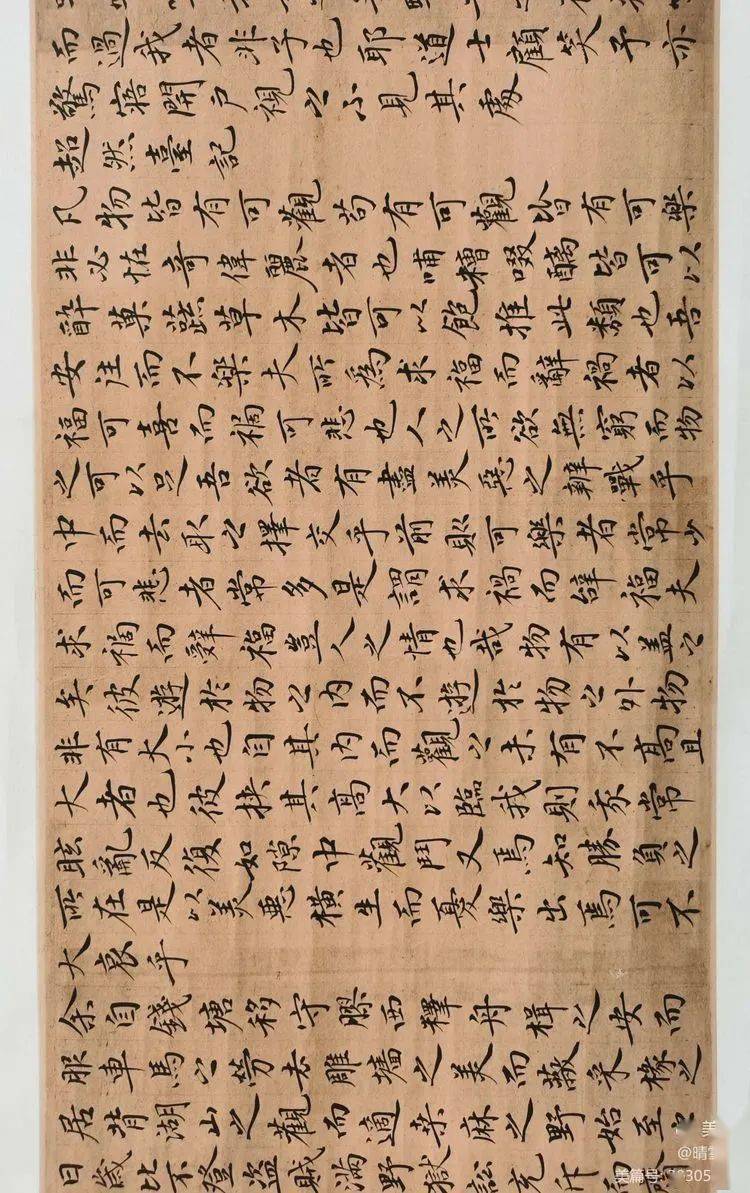 而過我者非子也耶道士顧笑予亦
驚寤開戶視之不見其處
超然臺記
凡物皆有可觀苟有可觀皆有可樂
非必怪奇偉麗者也哺糟啜醨皆可以
醉菓蔬草木皆可以飽推此類也吾
安往而不樂夫所為求福而辭禍者以
福可喜而禍可悲也人之所欲無窮而物
之可以足吾欲者有盡美惡之辨戰乎
中而去取之擇交乎前則可樂者常少
而可悲者常多是謂求禍而辭福夫
求禍而辭福豈人之情也哉物有以蓋之
矣彼遊於物之內而不遊於物之外物
非有大小也自其內而觀之未有不高且
大者也彼挾其高大以臨我則我常
眩亂反復如隙中觀鬥又焉知勝負之
所在是以美惡橫生而憂樂出焉可不
大哀乎
余自錢塘移守膠西釋舟楫之安而
服車馬之勞去雕墻之美而蔽采椽之
居背湖山之觀而適桑麻之野始至
日歲比不登盜賊滿野獄訟充斥
美
@晴
美篇号 0305